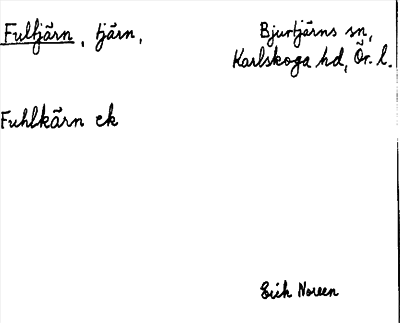 Fultjärn, tjärn, Bjurtjärns sn,
Karlskoga hd, Ör. l.
Fuhlkärn ek
Erik Noreen